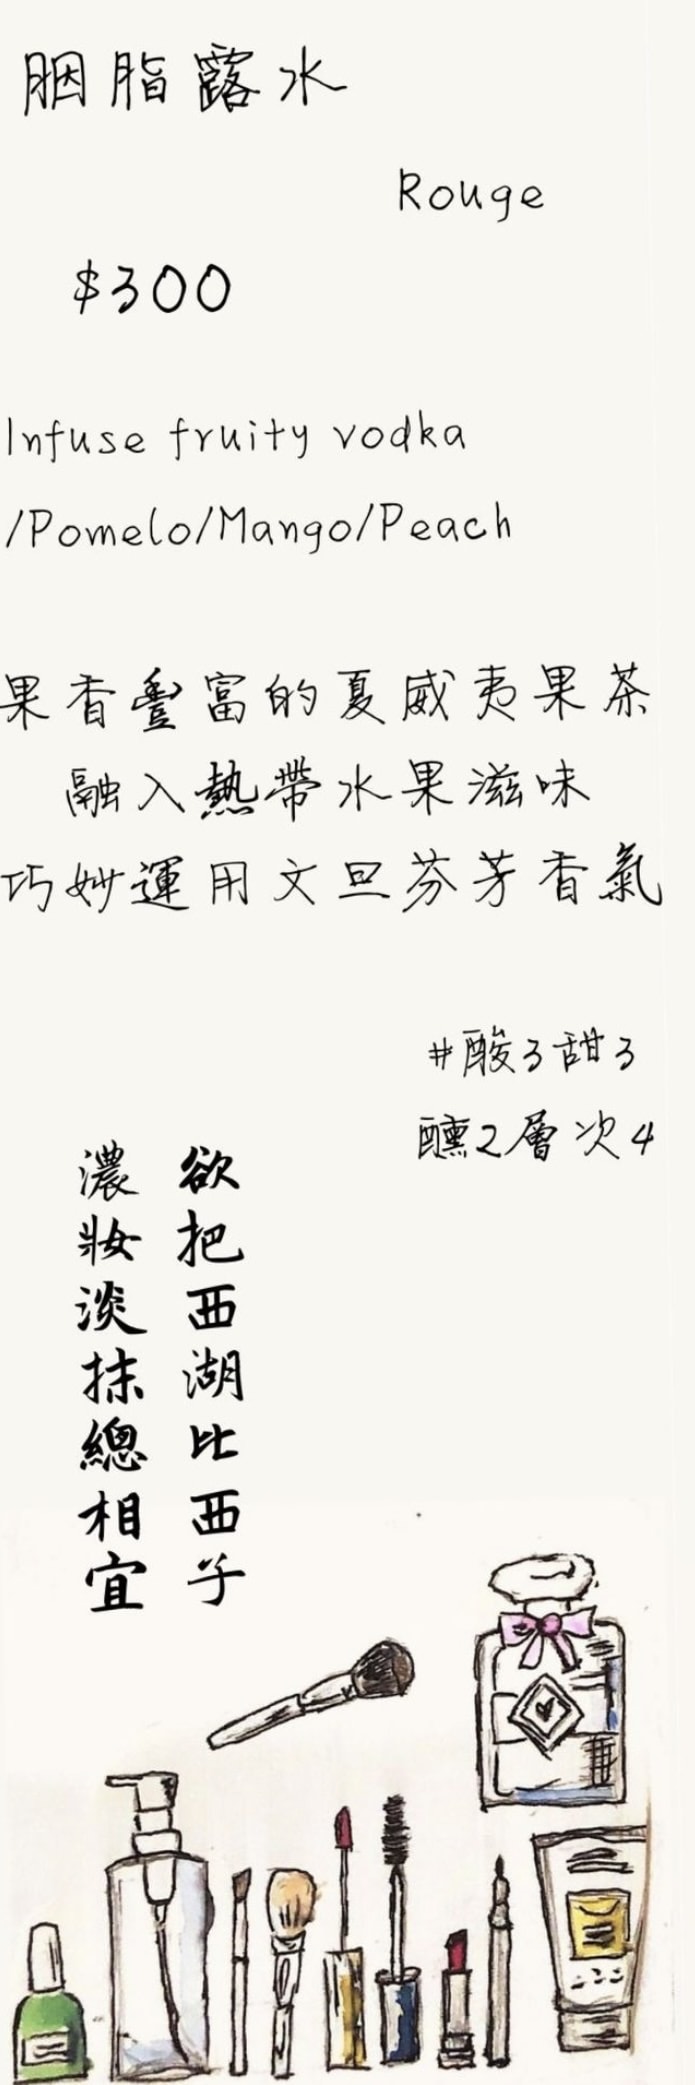 胭脂露水
Rouge
$300
Infuse fruity vodka
/Pomelo/Mango/Peach
果香豐富的夏威夷果茶
融入熱帶水果滋味
巧妙運用文旦芬芳香氣
#酸3甜3
醺2層次4
欲把西湖比西子
濃妝淡抹總相宜